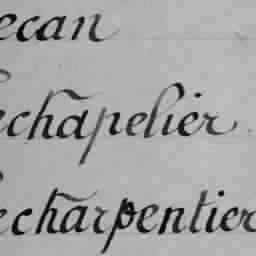 ecan
echapelier
echarpentier